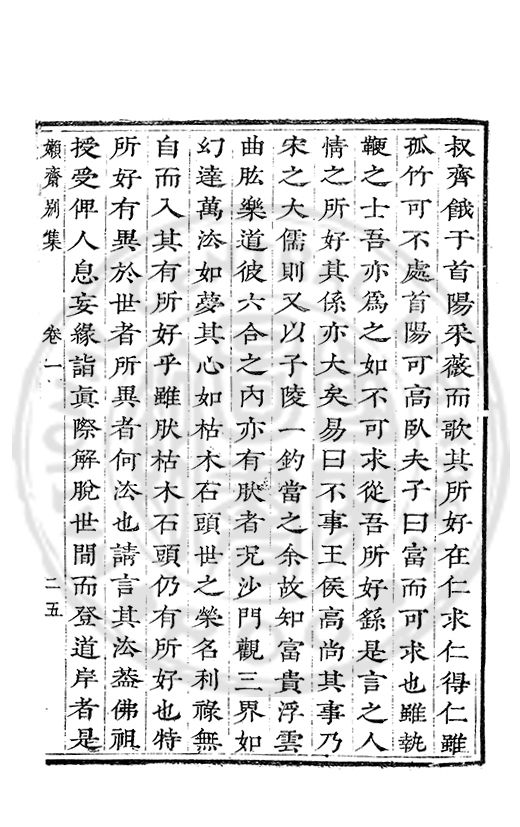 叔齊餓于首陽采薇而歌其所好在仁求仁得仁雖
孤竹可不處首陽可高臥夫子曰富而可求也雖執
鞭之士吾亦爲之如不可求從吾所好繇是言之人
情之所好其係亦大矣易曰不事王侯高尚其事乃
宋之大儒則又以子陵一釣當之余故知富貴浮雲
曲肱樂道彼六合之內亦有肰者況沙門觀三界如
幻達萬法如夢其心如枯木石頭世之榮名利祿無
自而入其有所好乎雖肰枯木石頭仍有所好也特
所好有異於世者所異者何法也請言其法葢佛祖
授受俾人息妄緣詣眞際解脫世間而登道岸者是
嬾齋別集 卷一 二五